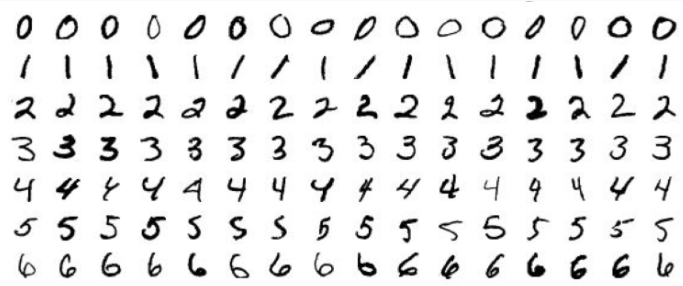 0 0 0 0 0 0 0 0 0 0 0 0 0 0 0 0
1 1 1 1 1 1 1 1 1 1 1 1 1 1 1 1
2 2 2 2 2 2 2 2 2 2 2 2 2 2 2 2
3 3 3 3 3 3 3 3 3 3 3 3 3 3 3 3
4 4 4 4 4 4 4 4 4 4 4 4 4 4 4 4
5 5 5 5 5 5 5 5 5 5 5 5 5 5 5 5
6 6 6 6 6 6 6 6 6 6 6 6 6 6 6 6